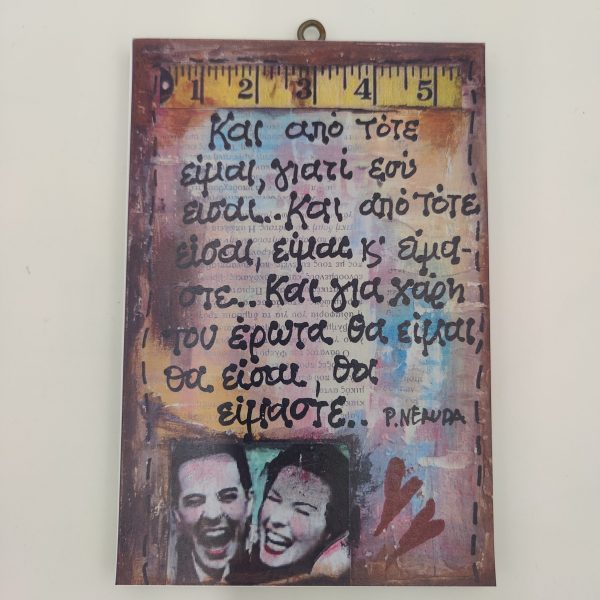 1 2 3 4 5
Και από τότε
είμαι, γιατί εσύ
εισαι.. Και από τότε
είσαι, είμαι κ' είμα-
στε.. Και για χάρη
του έρωτα θα είμαι,
θα είσαι, θα
είμαστε.. P. NERUDA